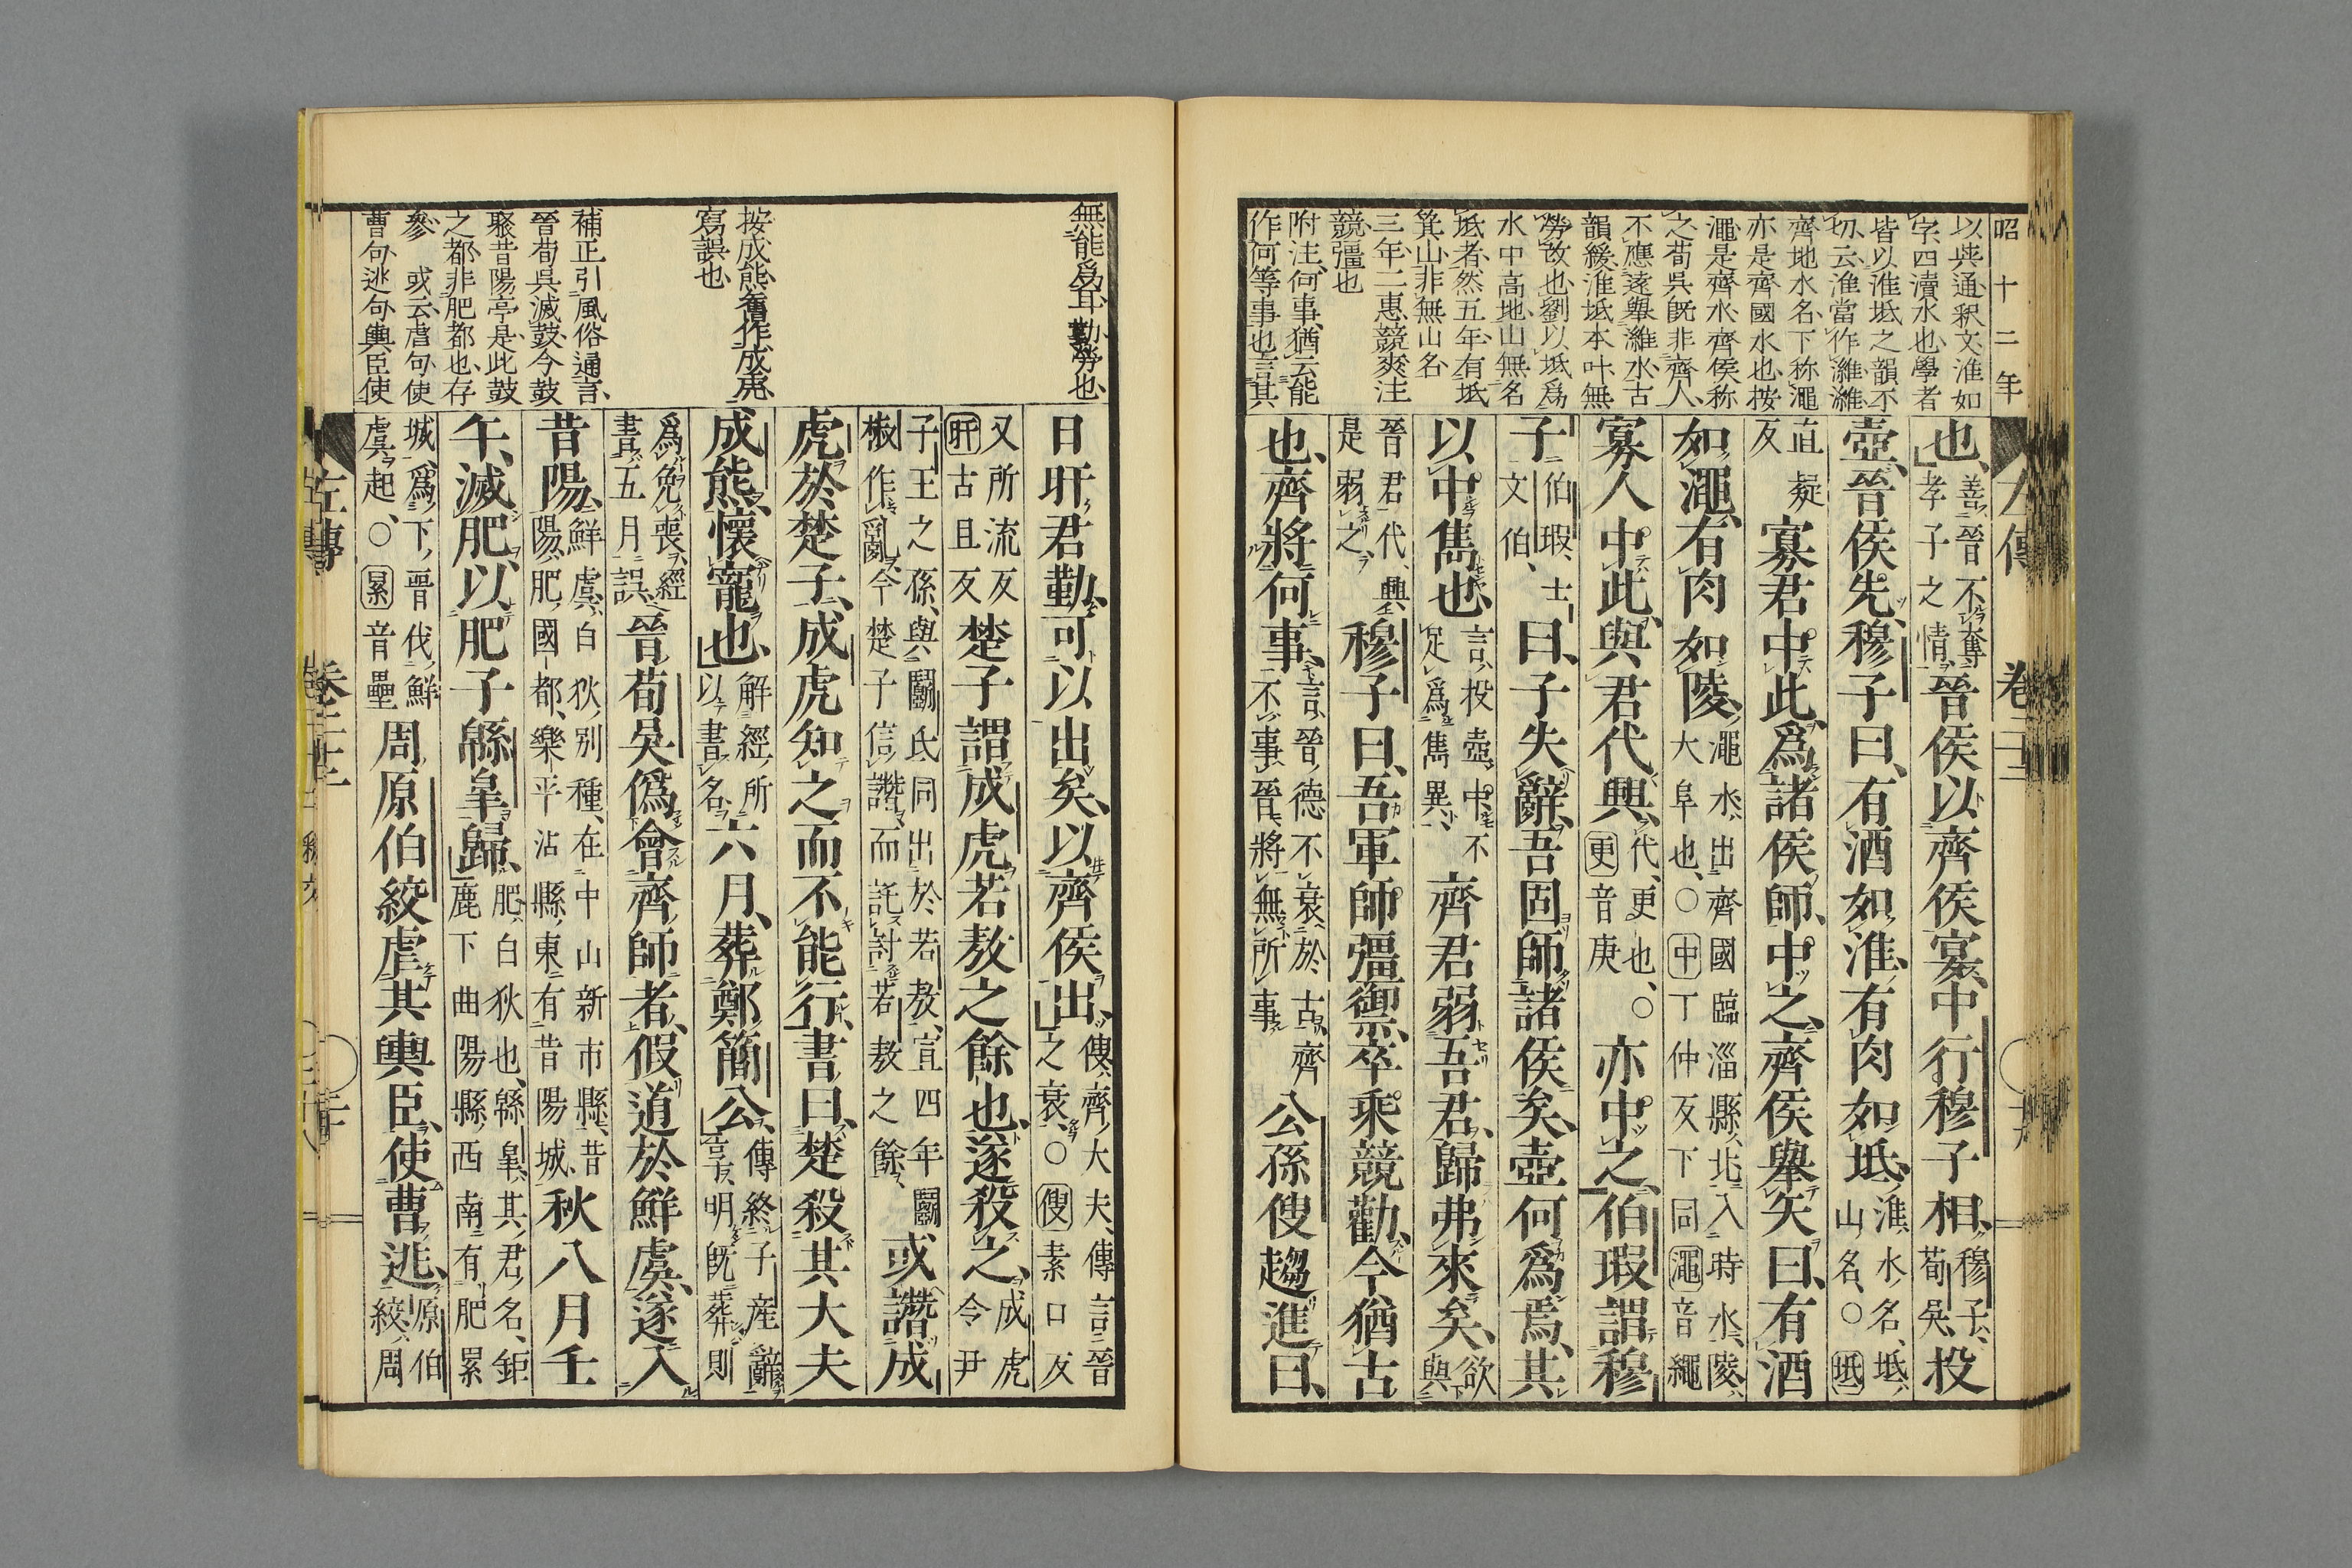 昭十二年
以與通釈文淮如
字四瀆水也學者
皆以淮坻之韻不
切云淮當作濰濰
齊地水名下称澠
亦是齊國水也按
澠是齊水齊侯称
之荀呉既非齊人
不應遠舉濰水古
韻緩淮坻本叶無
勞改也劉以坻為
水中高地山無名
坻者然五年有坻
箕山非無山名
三年二惠競爽注
競彊也
附注何事猶云能
作何等事也言其
左傳 卷二十二
也善晉不奪孝子之情晉侯以齊侯宴中行穆子相穆子荀吳投
壺晉侯先穆子曰有酒如淮有肉如坻淮水名坻山名○坻
直疑反寡君中此為諸侯師中之齊侯舉矢曰有酒
如澠有肉如陵澠水出齊國臨淄縣北入時水陵大阜也○中丁仲反下同澠音繩
寡人中此與君代興代更也○更音庚亦中之伯瑕謂穆
子伯瑕士文伯曰子失辭吾固師諸侯矣壺何為焉其
以中雋也言投壺中不足為雋異齊君弱吾君歸弗來矣欲與
晉君代興是弱之穆子曰吾軍師彊禦卒乘競勸今猶古
也齊將何事言晉德不衰於古齊不事晉將無所事公孫傁趨進曰
無能為耳勤勞也
按成熊舊作成虎
寫誤也
補正引風俗通言
晉荀呉滅鼓今鼓
聚昔陽亭是此鼓
之都非肥都也存
參 或云虐句使
曹句逃句輿臣使
日旰君勤可以出矣以齊侯出傁齊大夫傳言晉之衰○傁素口反
又所流反旰古旦反楚子謂成虎若敖之餘也遂殺之成虎令尹
子玉之孫與鬬氏同出於若敖宣四年鬬椒作亂今楚子信譖而託討若敖之餘或譖成
虎於楚子成虎知之而不能行書曰楚殺其大夫
成熊懷寵也解經所以書名六月葬鄭簡公傳終子產辭享明既葬則
為免喪經書五月誤晉荀吳偽會齊師者假道於鮮虞遂入
昔陽鮮虞白狄別種在中山新市縣昔陽肥國都樂平沾縣東有昔陽城秋八月壬
午滅肥以肥子緜皐歸肥白狄也緜皐其君名鉅鹿下曲陽縣西南有肥累
城為下晉伐鮮虞起○累音壘周原伯絞虐其輿臣使曹逃原伯絞周
左傳 卷二十二